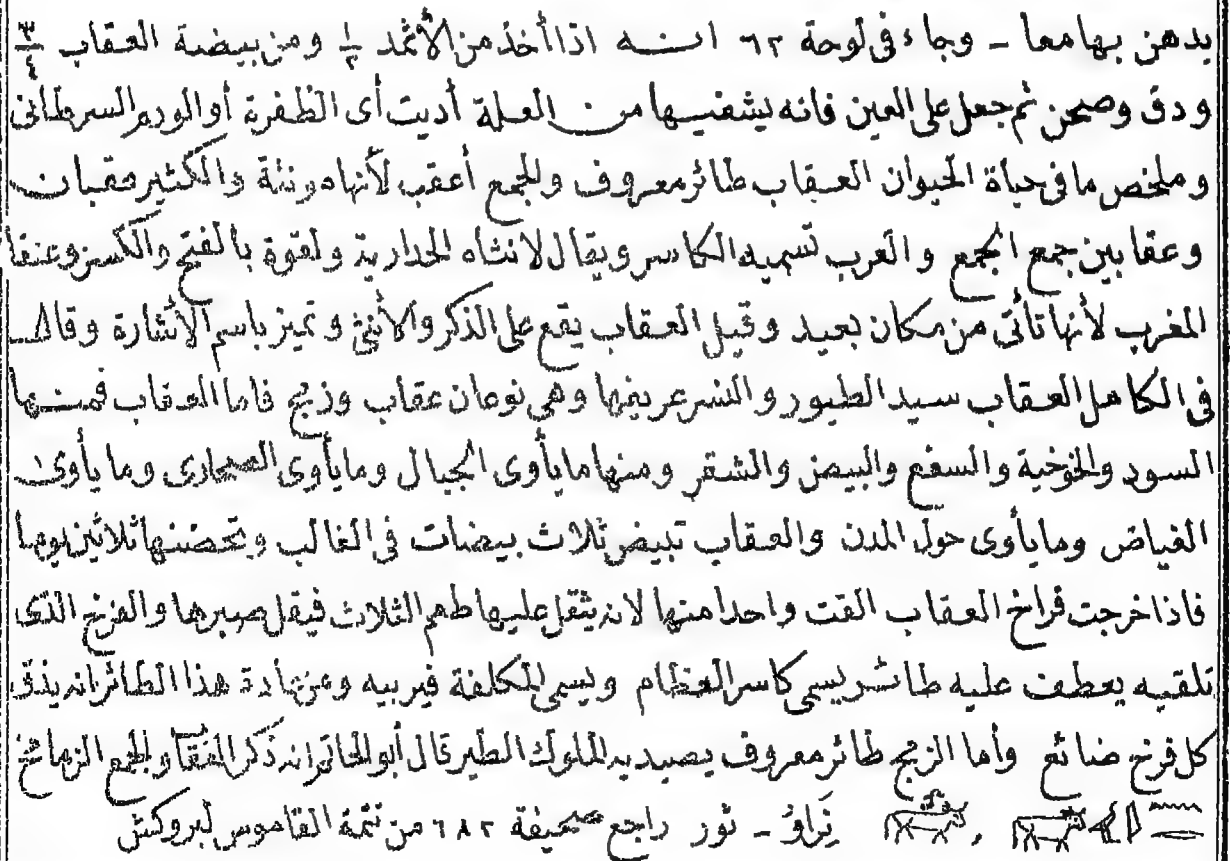 يدهن بها معا - وجاء فى لوحة ٦٢ انه اذا أخذ من الأثمد ١/٢ ومن بيضة العقاب ٣/٤
ودق وصحن ثم جعل على العين فانه يشفيها من العلة أديت أى الظفرة أو الورم السرطانى
وملخص ما فى حياة الحيوان العقاب طائر معروف والجمع أعقب لأنها مؤنثة والكثير عقبان
وعقابين جمع الجمع والعرب تسميه الكاسر ويقال لانثاه الحدارية ولقوة بالفتح والكسر وعنقا
المغرب لأنها تأتى من مكان بعيد وقيل العقاب يقع على الذكر والأنثى وتميز باسم الأشارة وقال
فى الكامل العقاب سيد الطيور والنسر عريفها وهى نوعان عقاب وزمج فاما العقاب فمنها
السود والخوخية والسفع والبيض والشقر ومنها ما يأوى الجبال وما يأوى الصحارى وما يأوى
الغياض وما يأوى حول المدن والعقاب تبيض ثلاث بيضات فى الغالب وتحضنها ثلاثين يوما
فاذا خرجت فراخ العقاب القت واحدا منها لانه يثقل عليها طعم الثلاث فيقل صبرها والفرخ الذى
تلقيه يعطف عليه طائر يسمى كاسر العظام ويسمى المكلفة فيربيه ومن عادة هذا الطائر انه يذق
كل فرخ ضائع وأما الزمج طائر معروف يصيد به الملوك الطير قال أبو الحاتم انه ذكر العقاب والجمع الزمامج
نراؤ - ثور راجع صحيفة ٦٨٢ من تتمة القاموس لبروكش